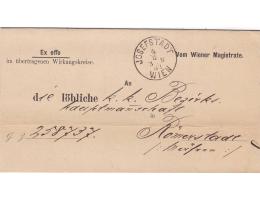 Ex offo
im übertragenen Wirkungskreise.
JOSEFSTADT
WIEN
Vom Wiener Magistrate.
An
die löbliche k. k. Bezirks
hauptmannschaft
in
258737.
Römerstadt
/: Mähren :/